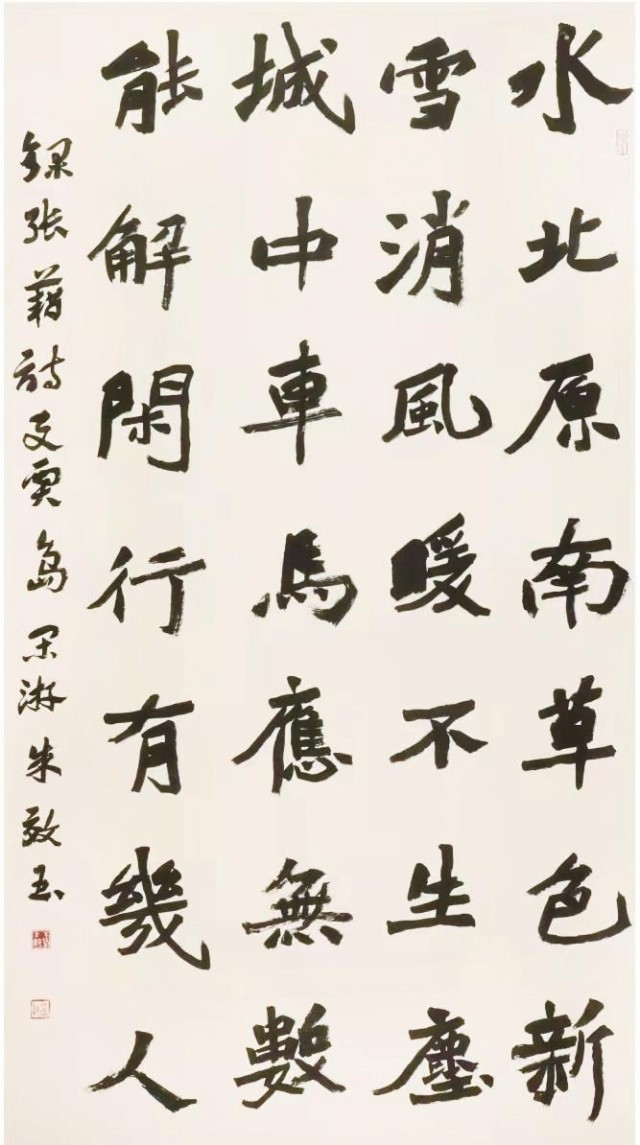 水北原南草色新
雪消風暖不生塵
城中車馬應無數
能解閑行有幾人
錄張藉詩賈島閑游朱